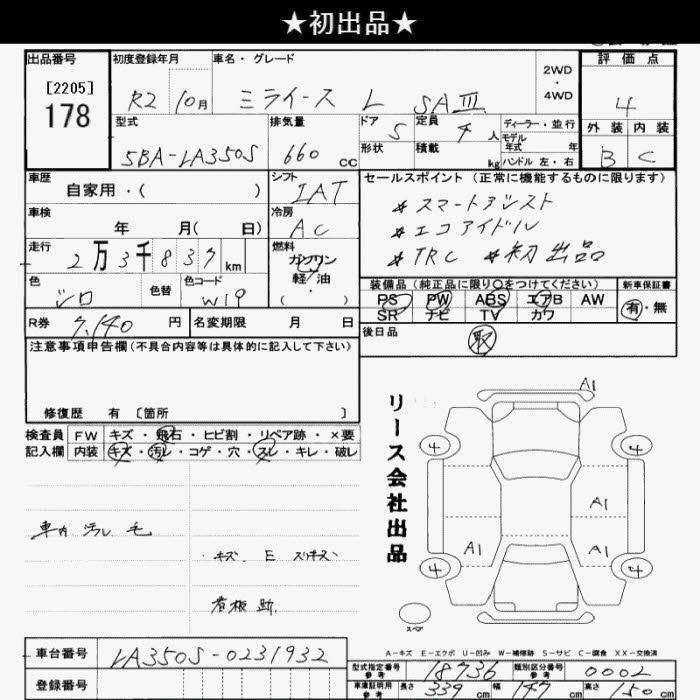 ★初出品★
出品番号
[2205]
178
初度登録年月
R2 10月
車名・グレード
ミライース L SAⅢ
2WD
・
4WD
評価点
4
外装 内装
B C
型式
5BA-LA350S
排気量
660 cc
ドア 5
形状
定員 4 人
積載 kg
ディーラー・並行
モデル
年式 年
ハンドル 左・右
車歴
自家用・( )
シフト
IAT
セールスポイント (正常に機能するものに限ります)
*スマートアシスト
*エコアイドル
*TRC *初出品
車検
年 月( 日)
冷房
AC
走行
2万3千837km
燃料
ガソリン
軽油
( ・ )
色
シロ
色替
色コード
W19
装備品 (純正品に限り〇をつけてください)
PS PW ABS エアB AW
SR ナビ TV カワ
新車保証書
有・無
R券 7,140 円
名変期限 月 日
後日品
取
注意事項申告欄 (不具合内容等は具体的に記入して下さい)
修復歴 有 [箇所 ]
検査員
記入欄
FW キズ・飛石・ヒビ割・リペア跡・×要
内装 キズ・汚レ・コゲ・穴・スレ・キレ・破レ
車内 汚レ 毛
・キズ、E スリキズ、
看板跡
リース会社出品
A1
4
4
A1
A1
A1
4
4
スペア
A-キズ E-エクボ U-凹み W-補修跡 S-サビ C-腐食 XX-交換済
車台番号 LA350S-0231932
登録番号
型式指定番号
参考
18736
類別区分番号
参考
0002
車庫証明用
参考
長さ 339 cm 幅 147 cm 高さ 150 cm